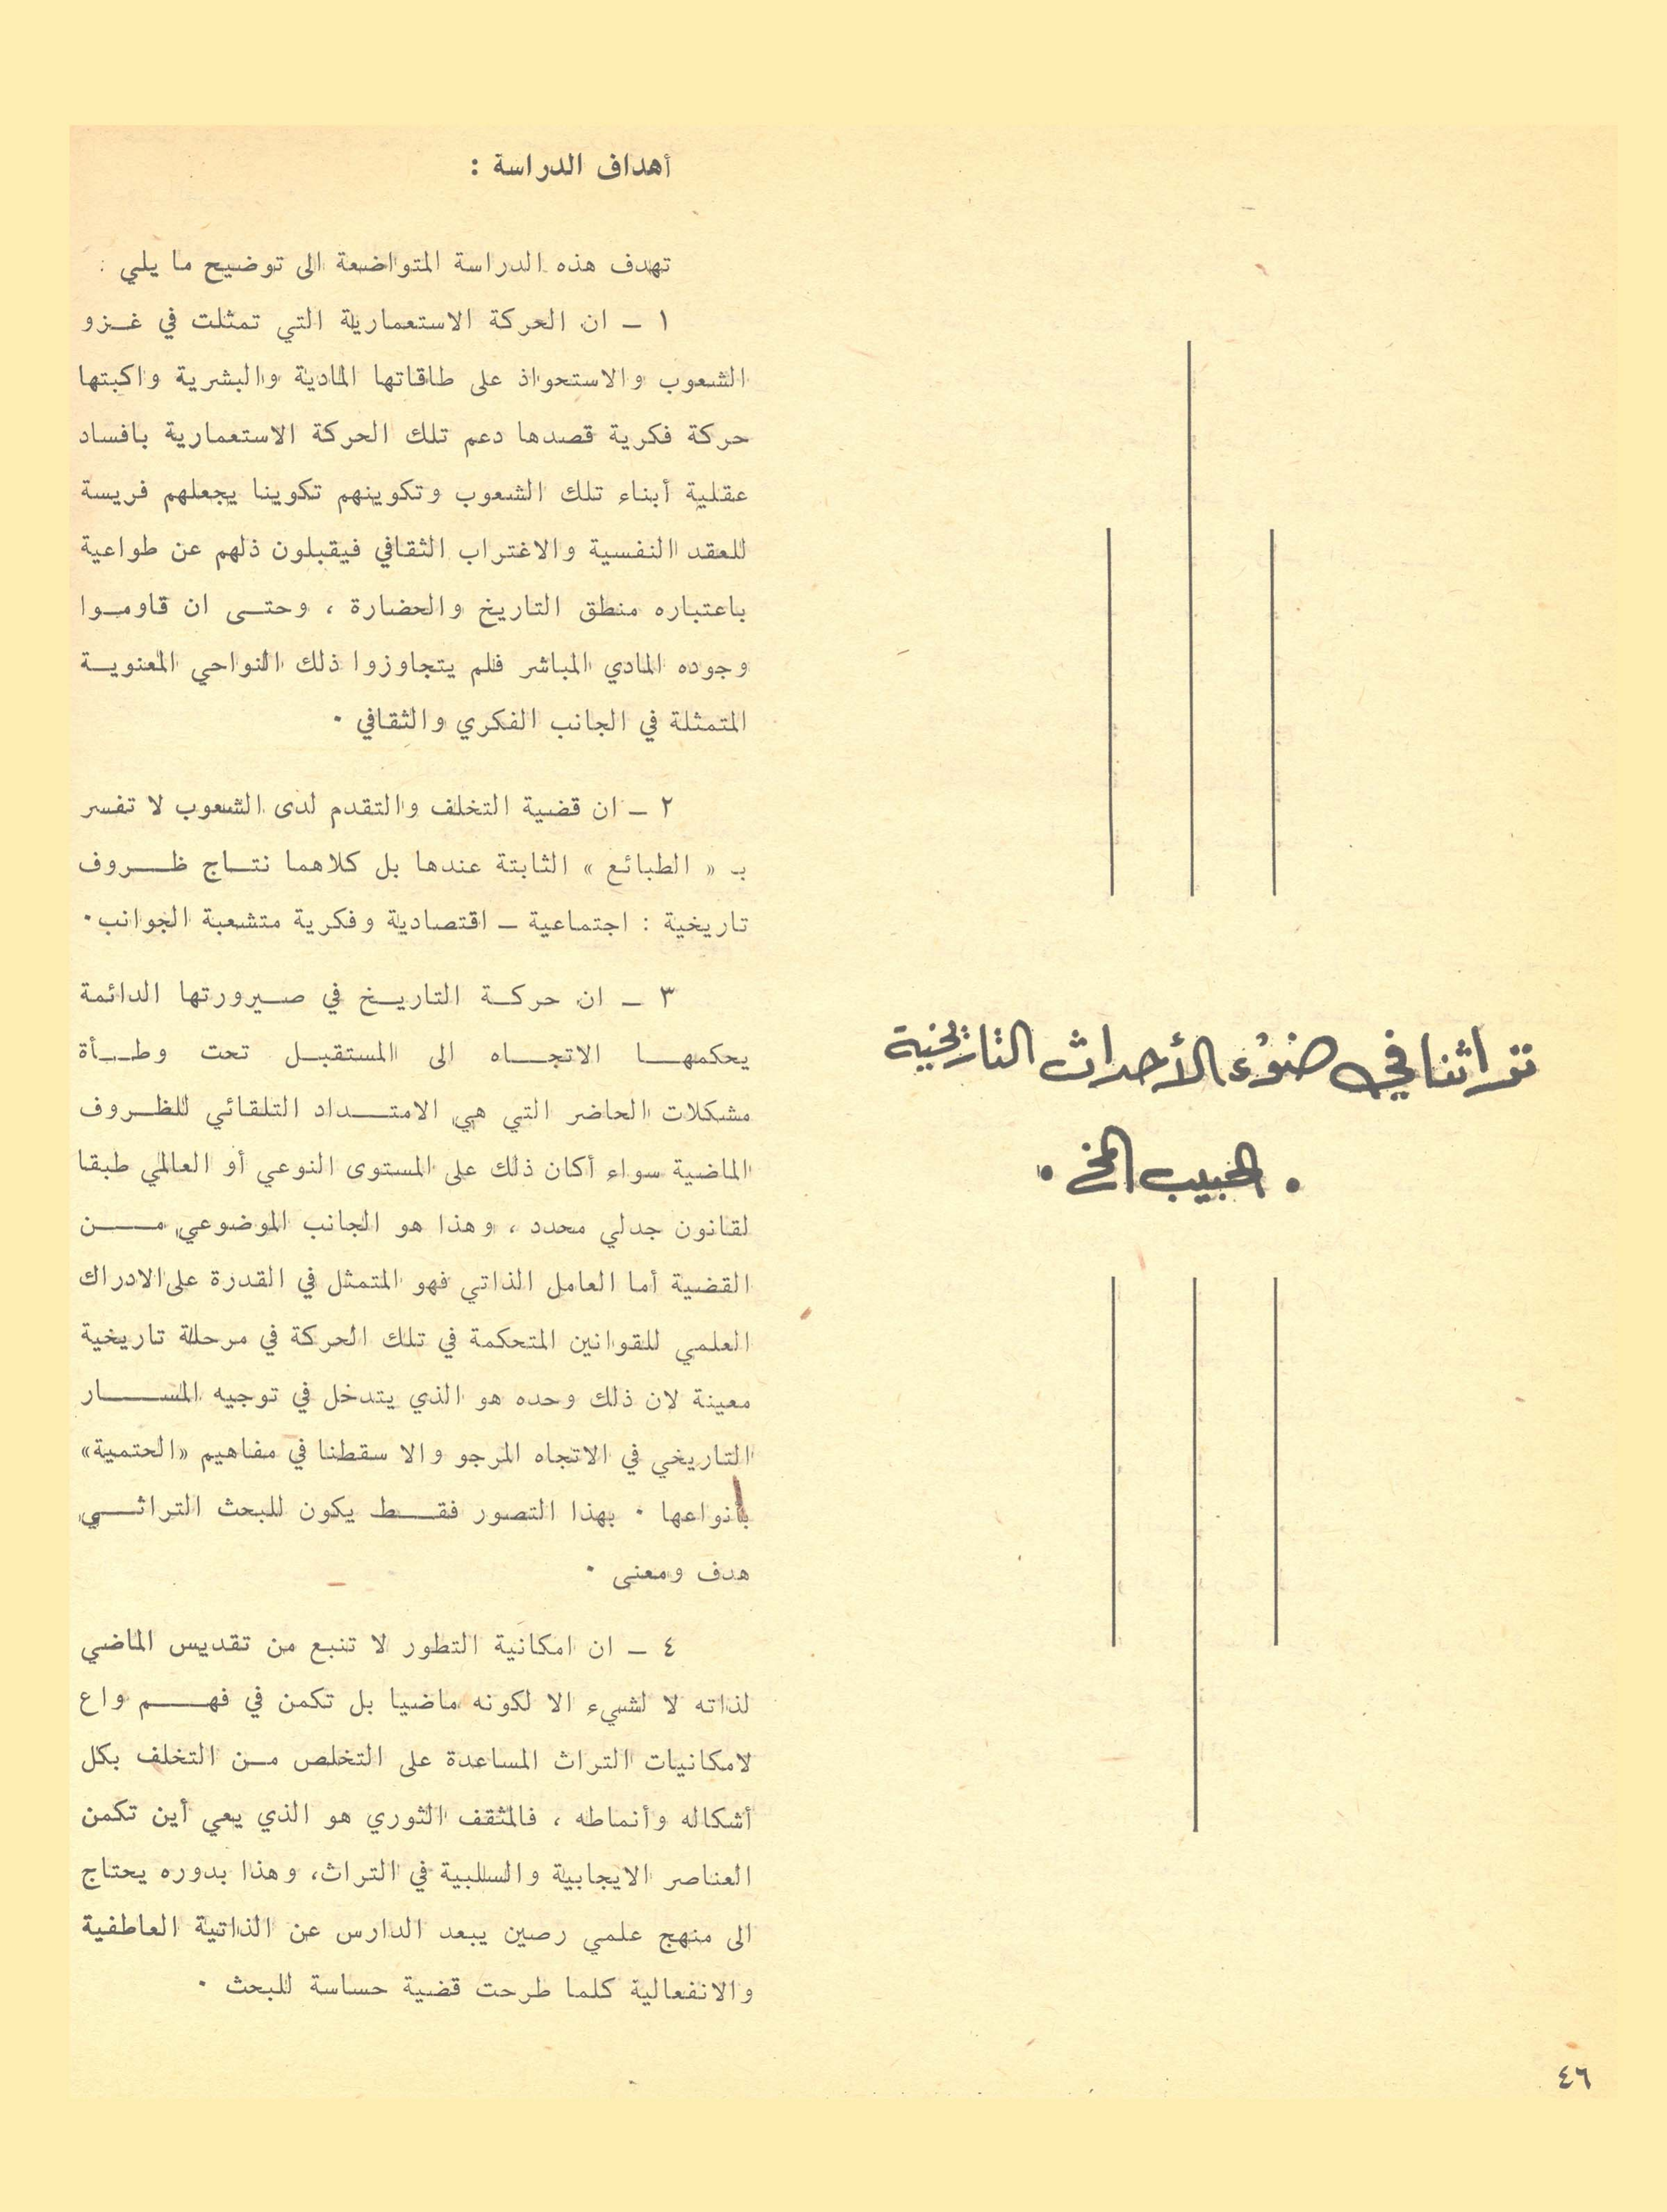 تراثنا في ضوء الأحداث التاريخية
• الحبيب المخ •
أهداف الدراسة :
تهدف هذه الدراسة المتواضعة الى توضيح ما يلي :
١ ـ ان الحركة الاستعمارية التي تمثلت في غـزو
الشعوب والاستحواذ على طاقاتها المادية والبشرية واكبتها
حركة فكرية قصدها دعم تلك الحركة الاستعمارية بافساد
عقلية أبناء تلك الشعوب وتكوينهم تكوينا يجعلهم فريسة
للعقد النفسية والاغتراب الثقافي فيقبلون ذلهم عن طواعية
باعتباره منطق التاريخ والحضارة ، وحتـى ان قاومـوا
وجوده المادي المباشر فلم يتجاوزوا ذلك النواحي المعنويـة
المتمثلة في الجانب الفكري والثقافي ٠
٢ ـ ان قضية التخلف والتقدم لدى الشعوب لا تفسر
بـ « الطبائع » الثابتة عندها بل كلاهما نتـاج ظـروف
تاريخية : اجتماعية ـ اقتصادية وفكرية متشعبة الجوانب٠
٣ ـ ان حركـة التاريـخ في صـيرورتها الدائمة
يحكمهـا الاتجـاه الى المستقبـل تحت وطـأة
مشكلات الحاضر التي هي الامتـداد التلقائي للظـروف
الماضية سواء أكان ذلك على المستوى النوعي أو العالمي طبقا
لقانون جدلي محدد ، وهذا هو الجانب الموضوعي مـن
القضية أما العامل الذاتي فهو المتمثل في القدرة على الادراك
العلمي للقوانين المتحكمة في تلك الحركة في مرحلة تاريخية
معينة لان ذلك وحده هو الذي يتدخل في توجيه المسـار
التاريخي في الاتجاه المرجو والا سقطنا في مفاهيم «الحتمية»
بأنواعها ٠ بهذا التصور فقـط يكون للبحث التراثـي
هدف ومعنى ٠
٤ ـ ان امكانية التطور لا تنبع من تقديس الماضي
لذاته لا لشيء الا لكونه ماضيا بل تكمن في فهـم واع
لامكانيات التراث المساعدة على التخلص مـن التخلف بكل
أشكاله وأنماطه ، فالمثقف الثوري هو الذي يعي أين تكمن
العناصر الايجابية والسلبية في التراث، وهذا بدوره يحتاج
الى منهج علمي رصين يبعد الدارس عن الذاتية العاطفية
والانفعالية كلما طرحت قضية حساسة للبحث ٠
٤٦